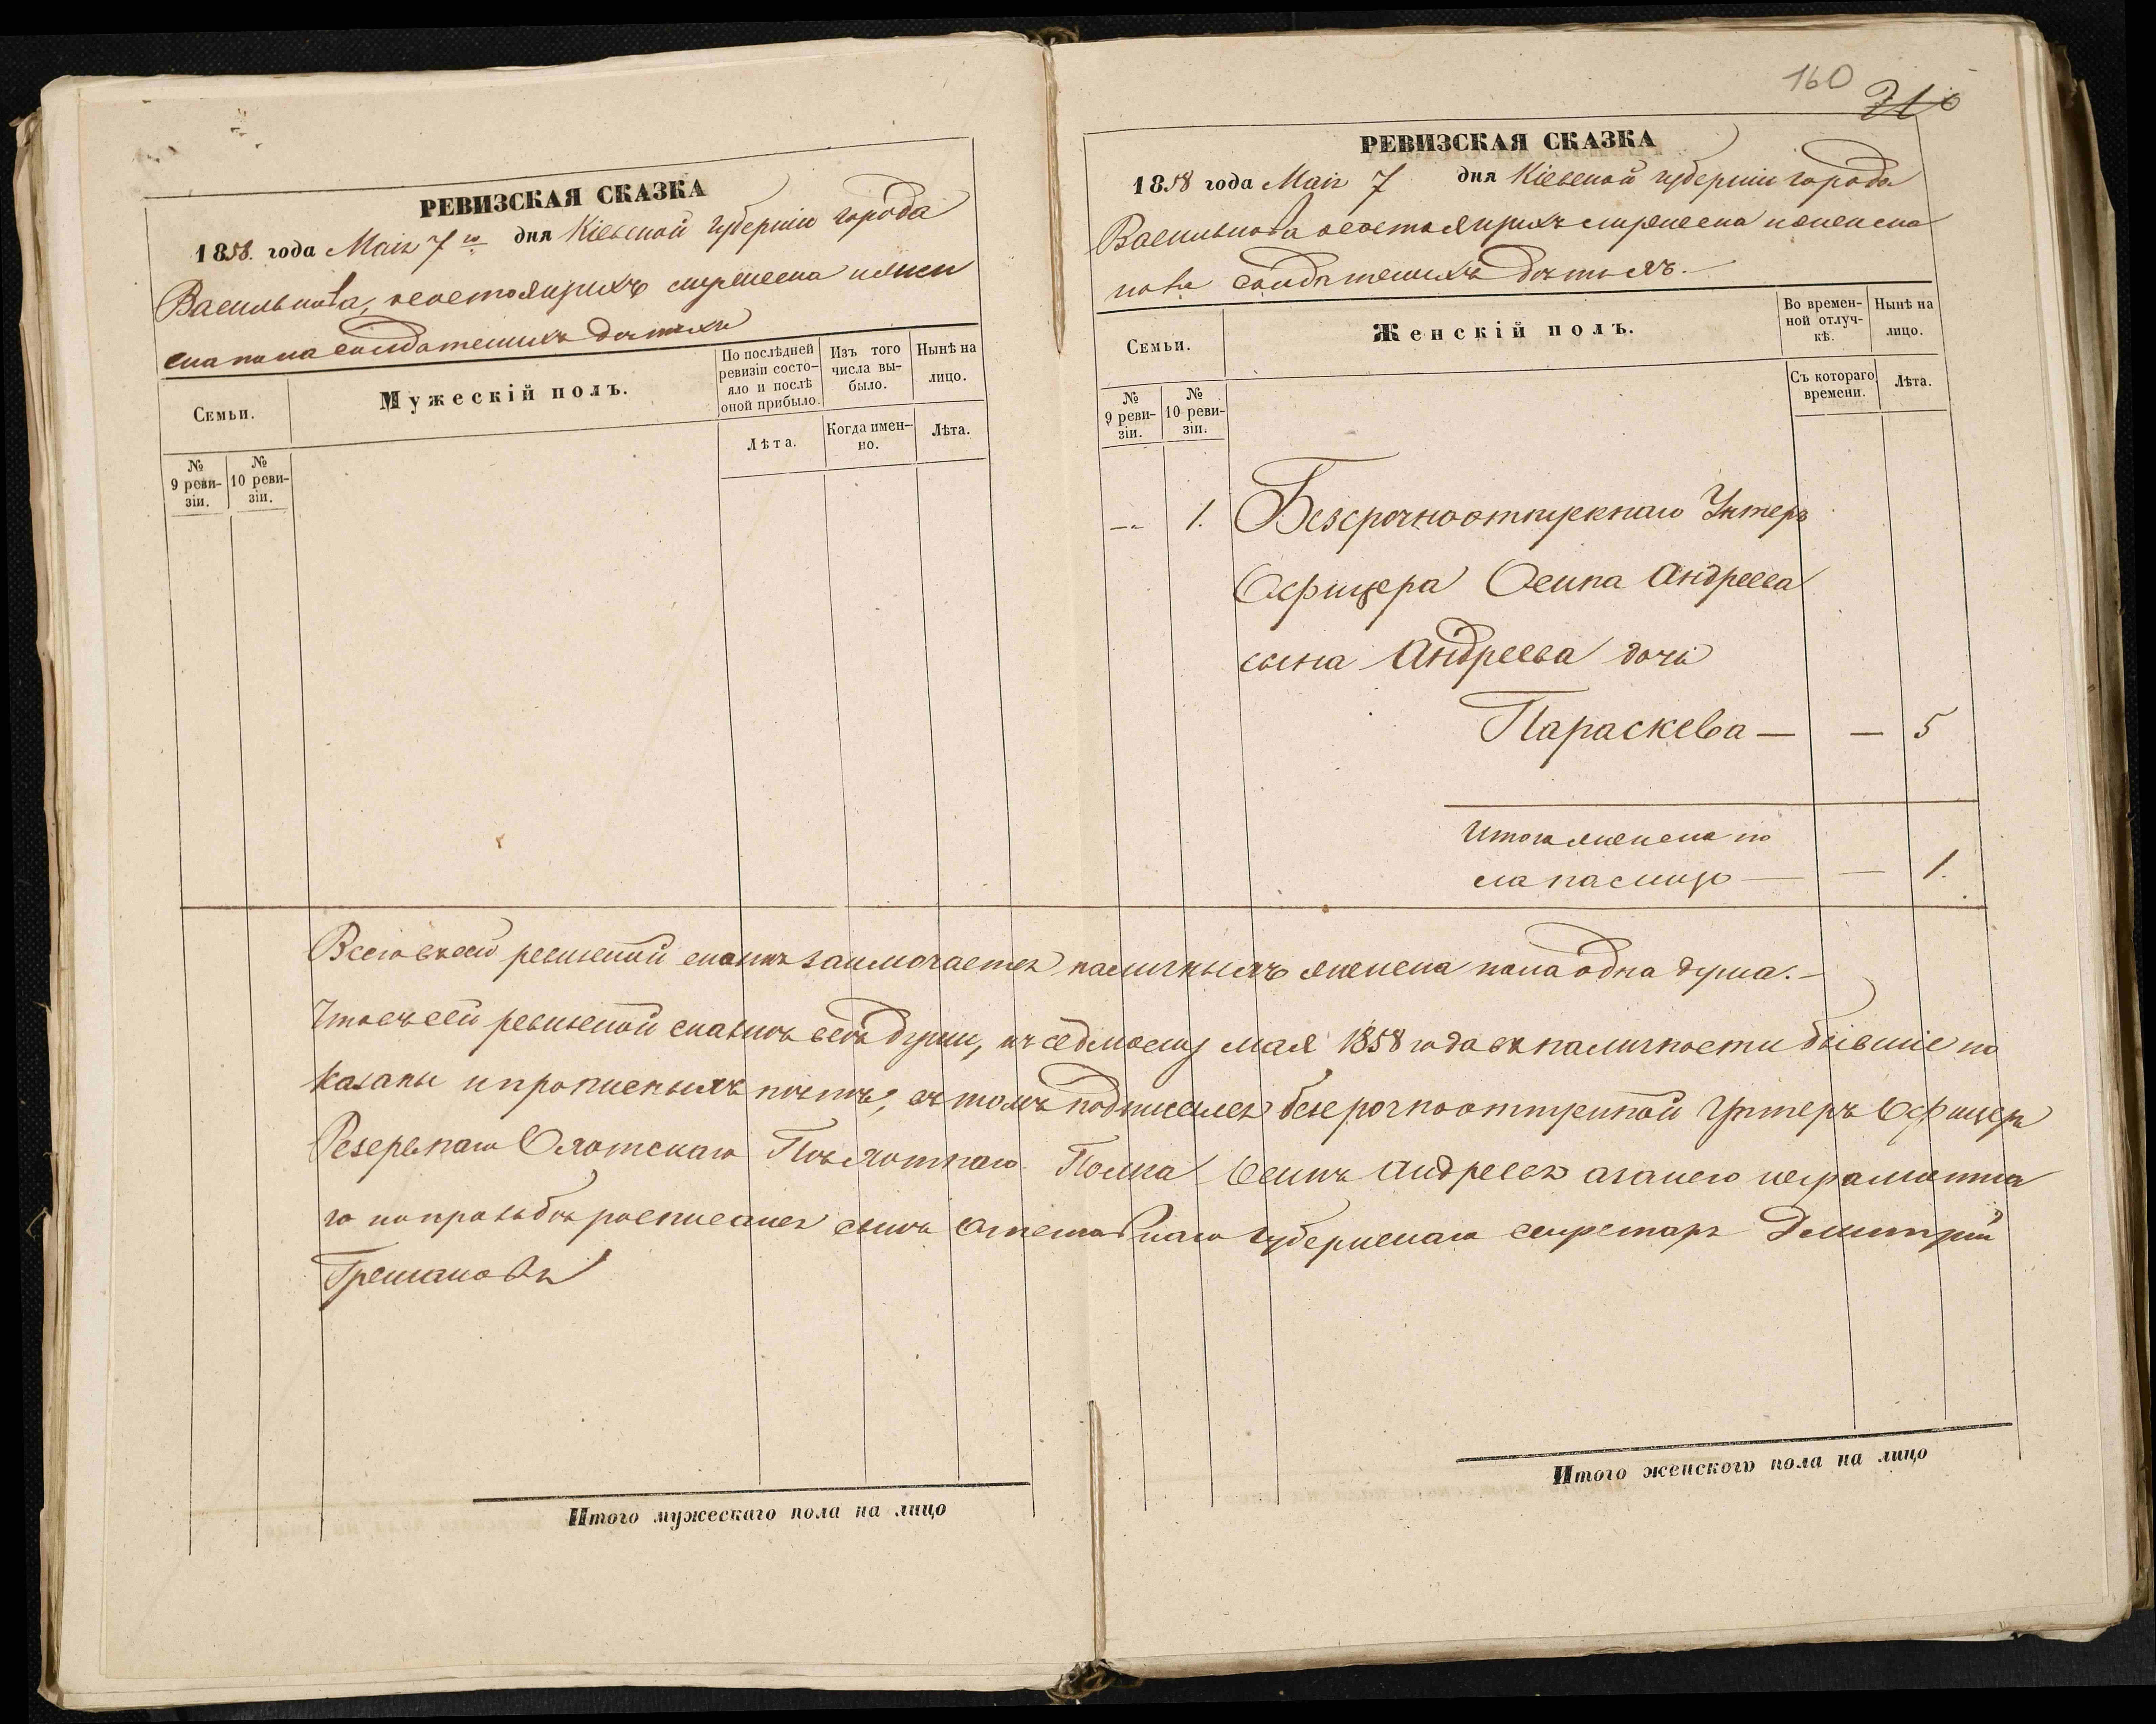 РЕВИЗСКАЯ СКАЗКА
1858. года Маія 7го дня Кіевской губерніи города
Василькова, о состоящихъ женска
пола солдатскихъ дѣтяхъ
Семьи.
Мужескій полъ.
По послѣдней ревизіи состояло и послѣ оной прибыло.
Изъ того числа выбыло.
Нынѣ на лицо.
№ 9 ревизіи.
№ 10 ревизіи.
Лѣта.
Когда именно.
Лѣта.
Итого мужескаго пола на лицо
160
РЕВИЗСКАЯ СКАЗКА
1858 года Маія 7 дня Кіевской губерніи города
Василькова о состоящихъ женска
пола солдатскихъ дѣтяхъ.
Семьи.
Женскій полъ.
Во временной отлучкѣ.
Нынѣ на лицо.
№ 9 ревизіи.
№ 10 ревизіи.
Съ котораго времени.
Лѣта.
— 1. Безсрочноотпускнаго Унтеръ
Офицера Осипа Андреева
сына Андреева дочь
Параскева — — 5
Итого женска по
ла на лицо — — 1.
Всего в сей ревизской сказкѣ заключается наличныхъ женска пола одна душа.—
Что въ сей ревизской сказкѣ всѣ души, къ седмому мая 1858 года въ наличности бывшіе по
казаны и прописныхъ нѣтъ, въ томъ подписался безсрочноотпускной Унтеръ Офицеръ
Резервнаго Охотскаго Пѣхотнаго Полка Осипъ Андреевъ а за него неграмотна
го по прозьбѣ росписался сынъ Отставнаго губернскаго секретаря Дмитрій
Итого женскаго пола на лицо